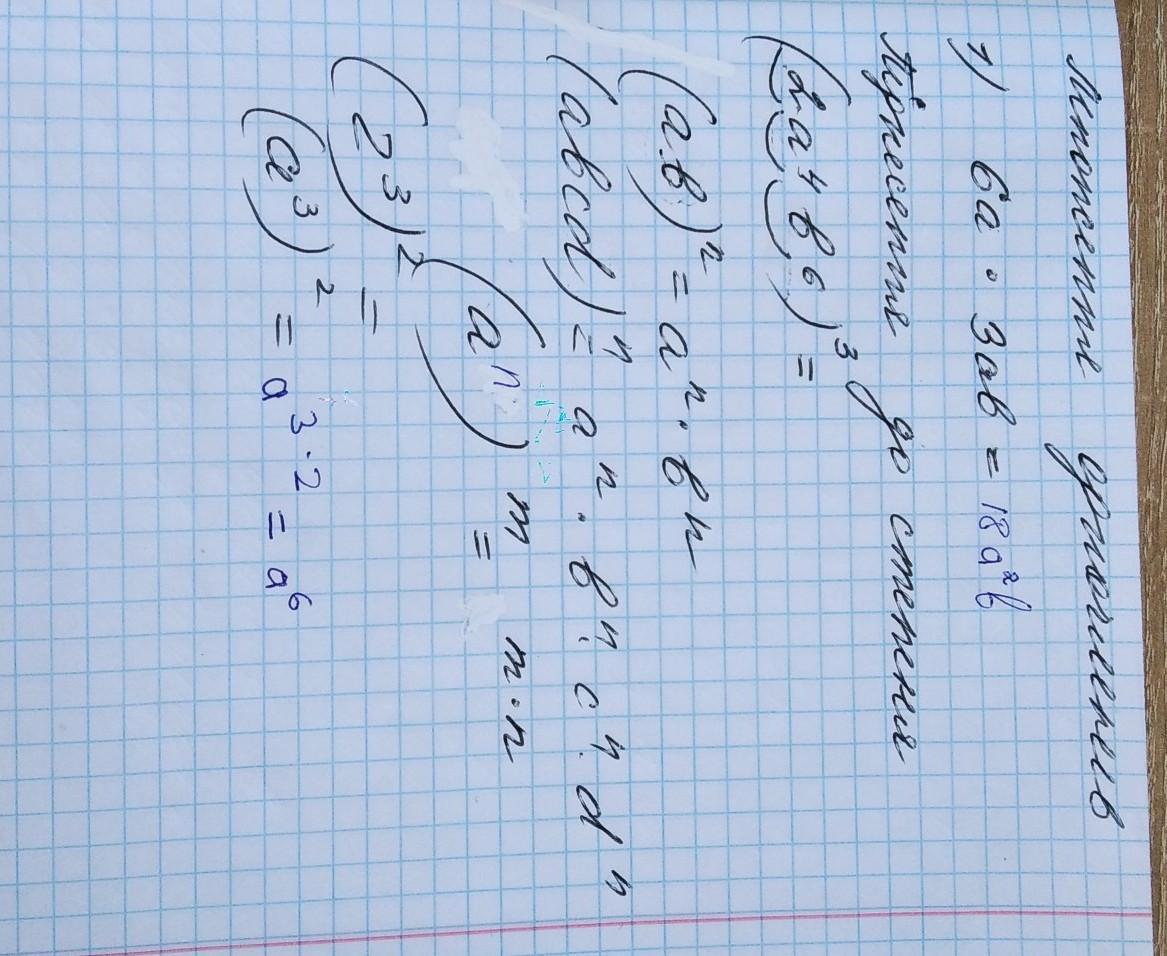 Множення одночленів
1) 6a · 3ab = 18a²b
Піднесення до степеня
(2a⁴b⁶)³ =
(a·b)ⁿ = aⁿ · bⁿ
(abcd)ⁿ = aⁿ · bⁿ · cⁿ · dⁿ
(aⁿ)ᵐ = m·n
(2³)² =
(a³)² = a³·² = a⁶